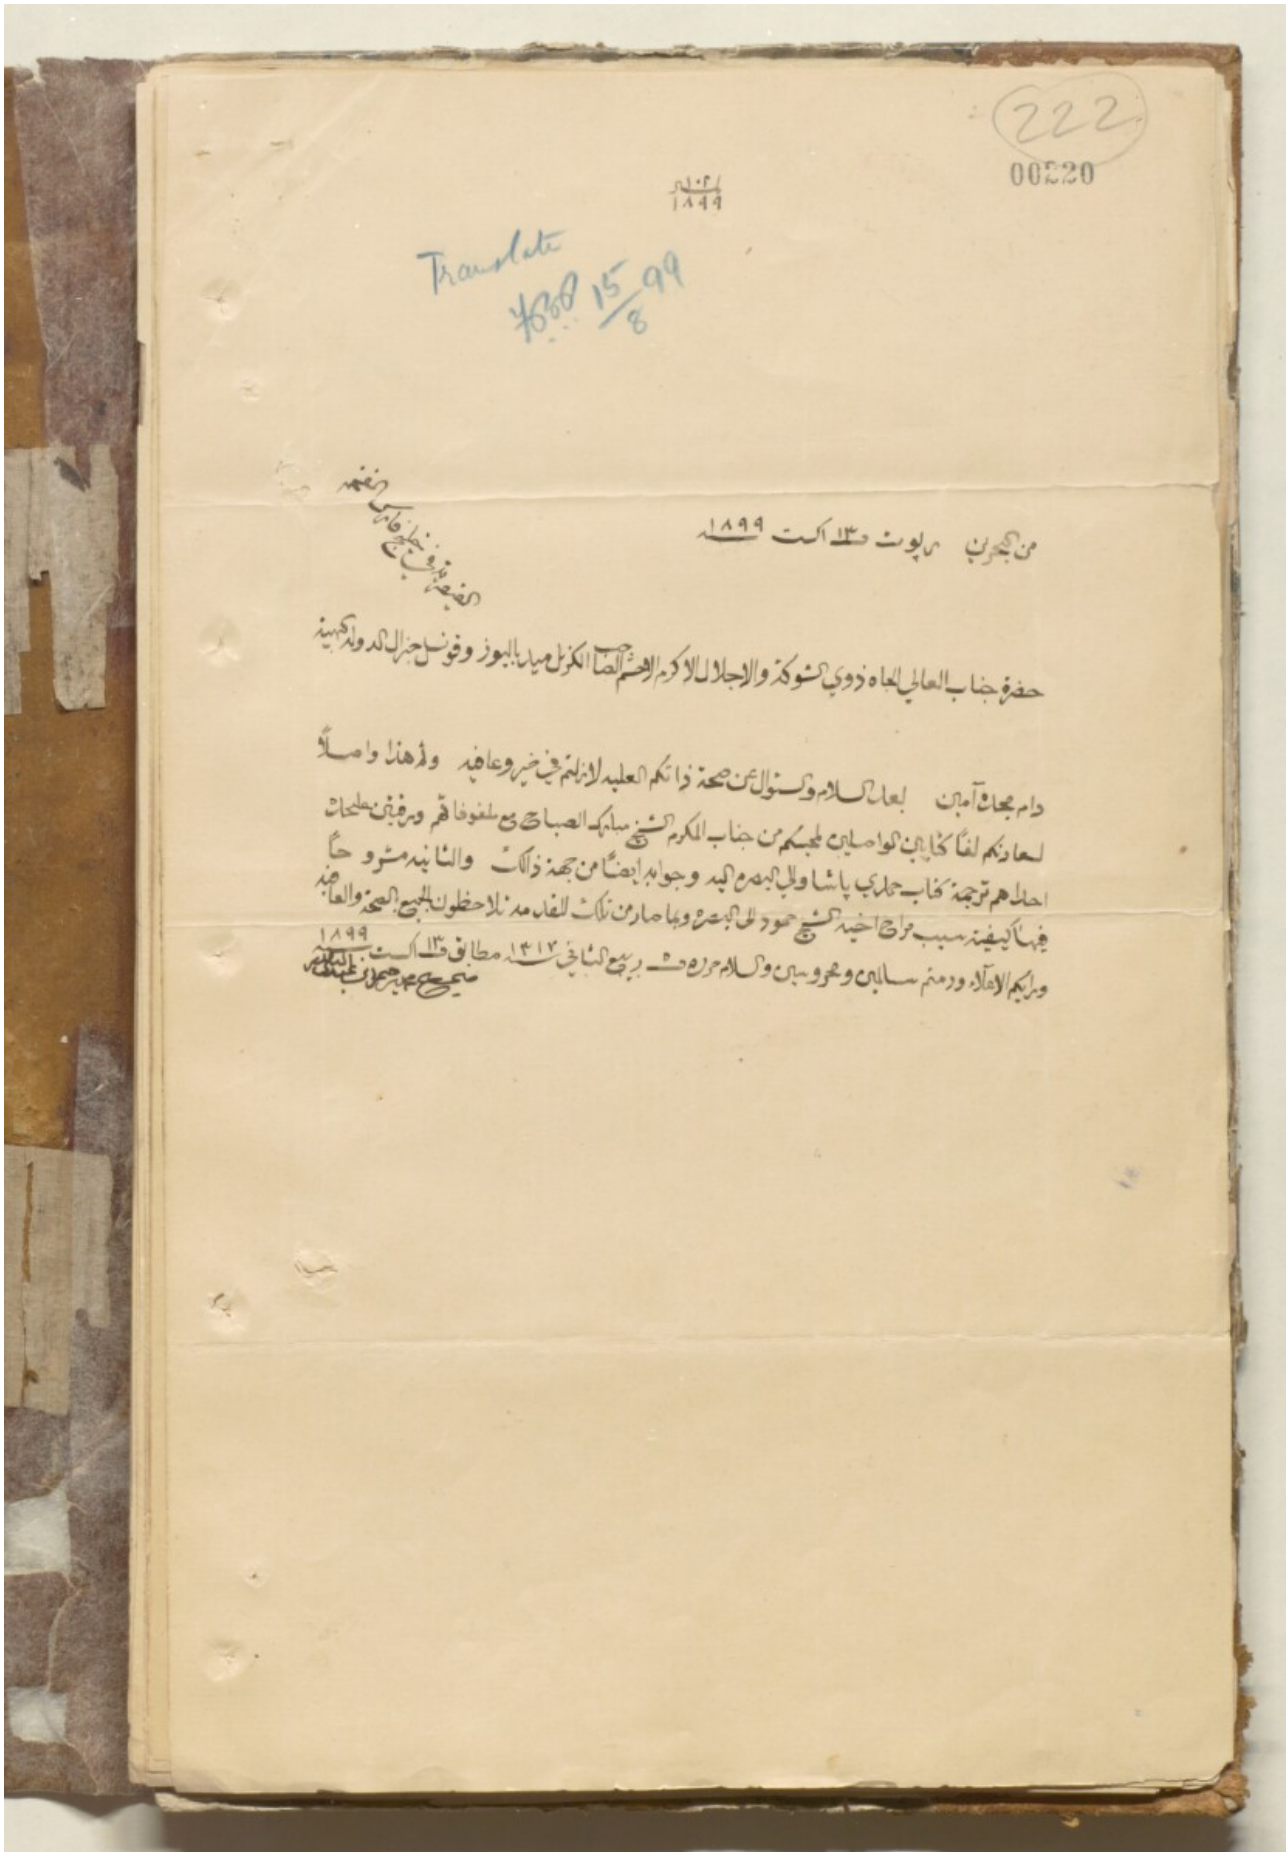 222
00220
١٨٩٩
Translate
15/8 99
من البحرين رپوت ١٣ اكست ١٨٩٩
القيصريه في خليج فارس
حضرة جناب العالي الجاه ذوي الشوكة والاجلال الاكرم الافخم الصاحب الكرنل ميد باليوز وقونسل جنرال الدولة البهية
دام مجده آمين بعد السلام والسئوال عن صحة ذاتكم العليه لازلتم في خير وعافيه ولهذا واصلاً
لسعادتكم لفاً كتابين الواصلين لمحبكم من جناب المكرم الشيخ مبارك الصباح مع ملفوفاتهم ورقتين عليحدات
احداهم ترجمة كتاب حمدي پاشا والي البصره اليه وجوابه ايضاً من جهة ذالك والثانيه مشروحاً
فيها كيفية سبب مراح اخيه الشيخ حمود الى البصره وبما صار من تلك المقدمه تلاحظون الجميع بالصحة والعافيه
ورايكم الاعلاء ودمتم سالمين ومحروسين والسلام حرره ٥ ربيع الثاني ١٣١٧ مطابق ١٣ اكست ١٨٩٩
صحيح محمد رحيم بن عبدالنبي